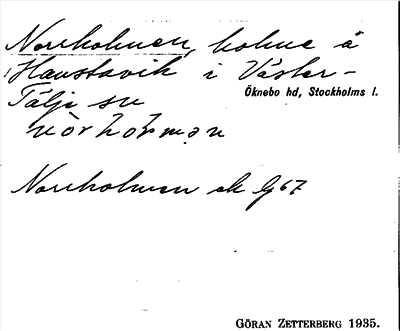 Norrholmen, holme å
Haustavik i Väster-
Tälje sn
Öknebo hd, Stockholms l.
nòrhòlmən
Norrholmen ek G 67
GÖRAN ZETTERBERG 1935.